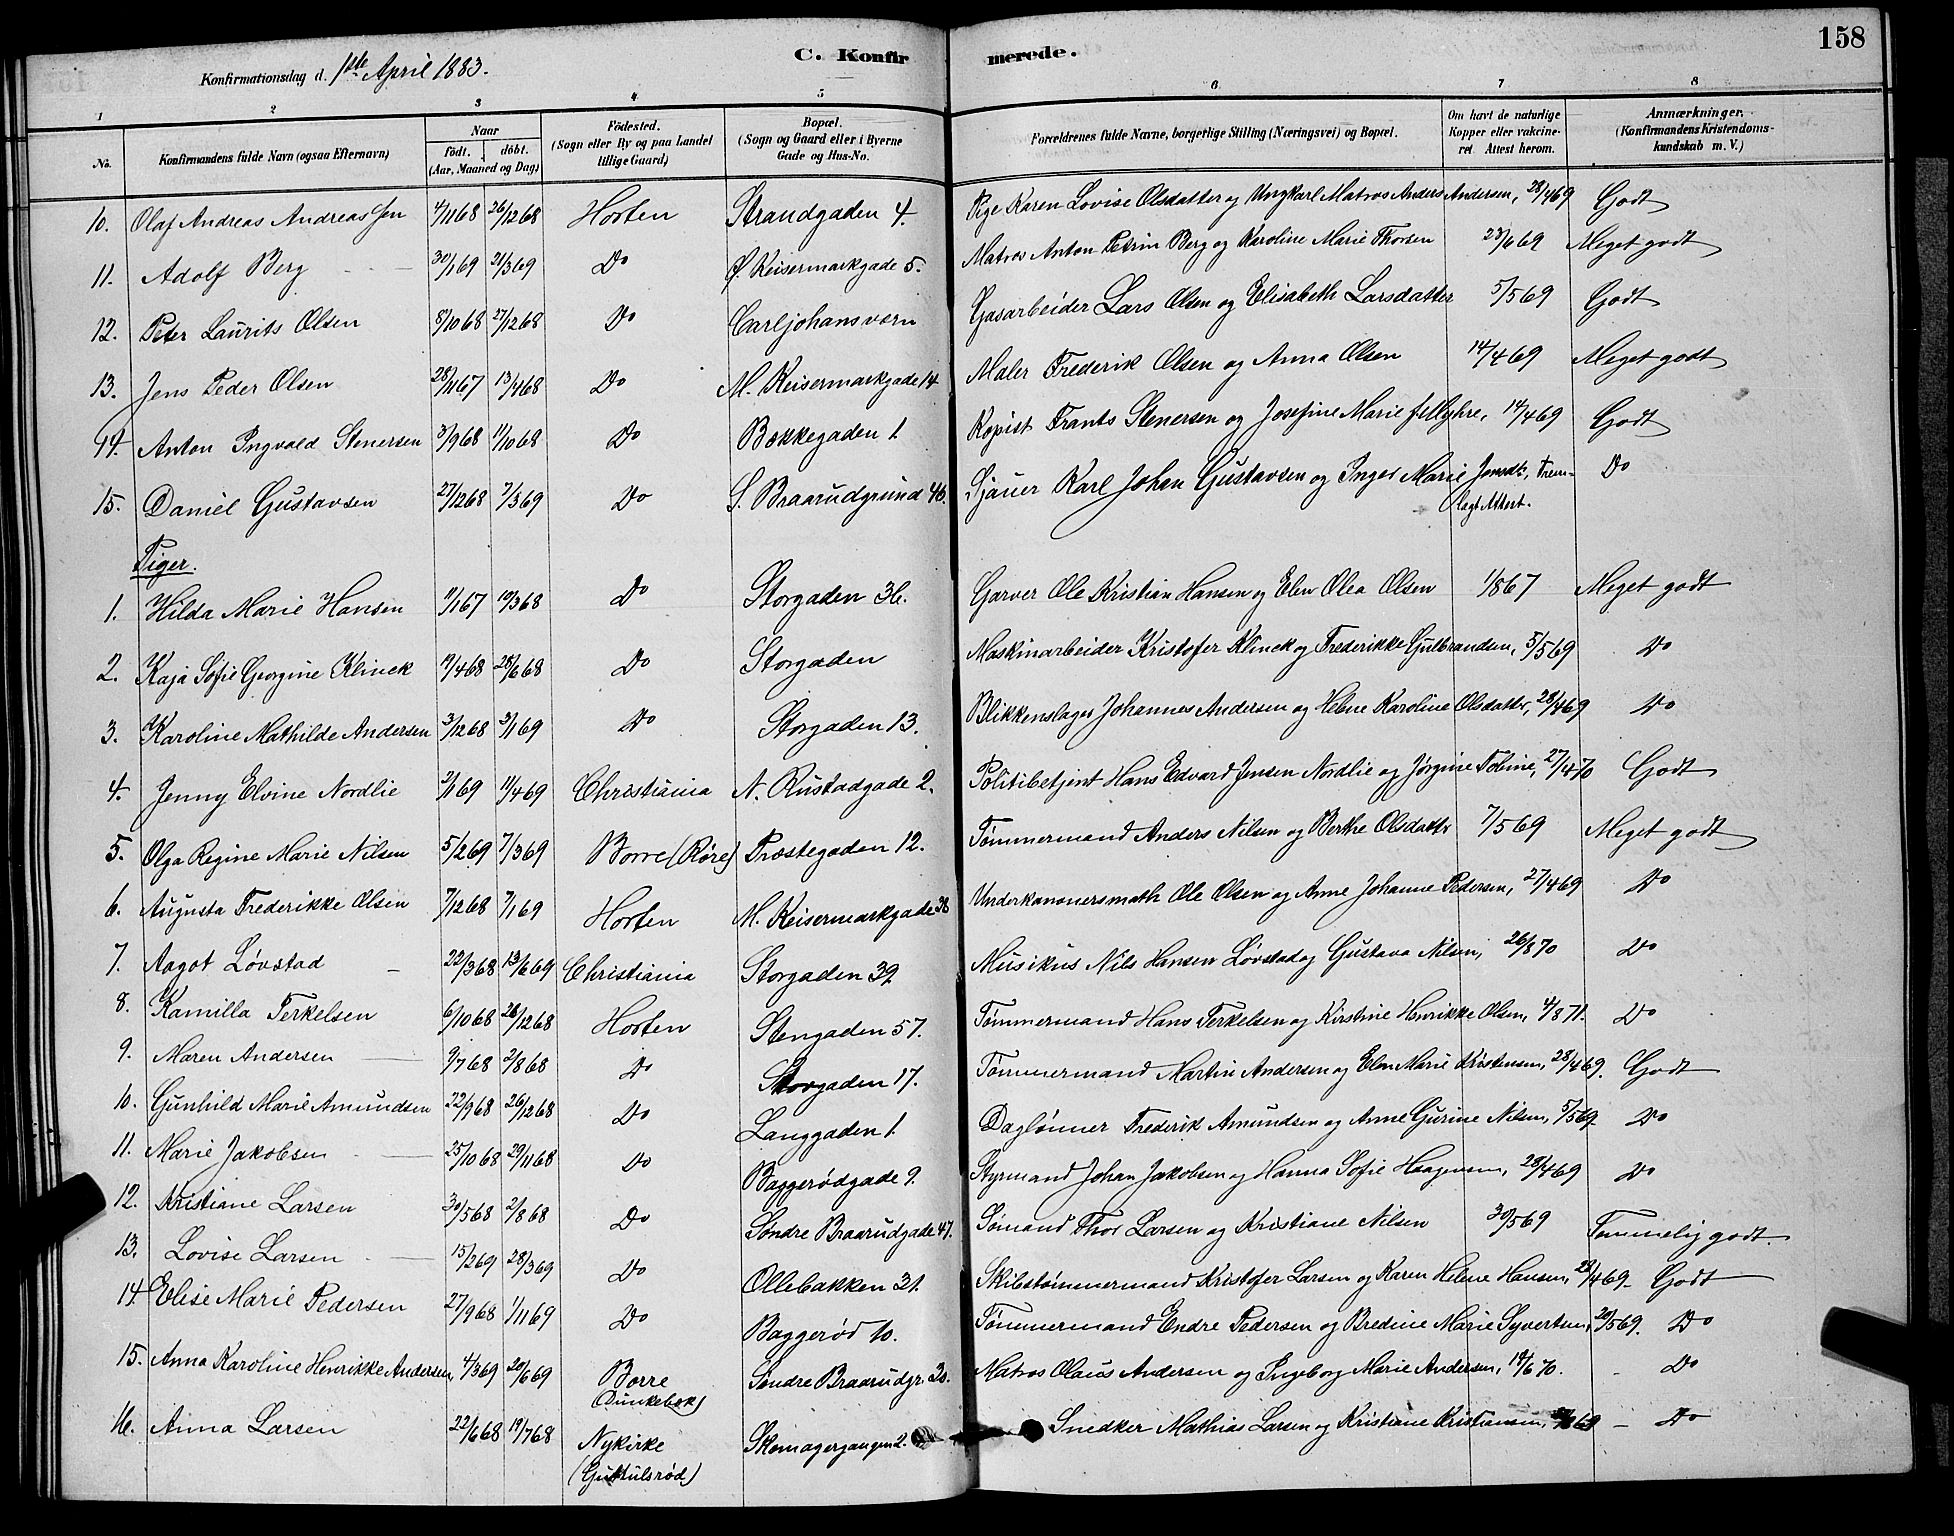 158
Konfirmationsdag d. 1ste April 1883. C. Konfirmerede.
1 2 3 4 5 6 7 8
No. Konfirmandens fulde Navn (ogsaa Efternavn) Naar födt. döbt. (Aar, Maaned og Dag) Födested. (Sogn eller By og paa Landet tillige Gaard) Bopæl. (Sogn og Gaard eller i Byerne Gade og Hus-No. Forældrenes fulde Navne, borgerlige Stilling (Næringsvei) og Bopæl. Om havt de naturlige Kopper eller vaccineret Attest herom. Anmærkninger. (Konfirmandens Kristendomskundskab m. V.)
10. Olaf Andreas Andreassen 4/1168 26/1268 Horten Strandgaden 4. Pige Karen Lovise Olsdatter og Ungkarl Matros Anders Andersen, 28/469 Godt
11. Adolf Berg 30/169 21/369 Do Ø. Keisermarkgade 5. Matros Anton Petrin Berg og Karoline Marie Thorsen 23/669 Meget godt
12. Peter Laurits Olsen 8/1068 27/1268 Do Carljohansvern Gasarbeider Lars Olsen og Elisabeth Larsdatter 5/569 Godt
13. Jens Peder Olsen 28/1167 13/468 Do M. Keisermarkgade 14 Maler Frederik Olsen og Anna Olsen 14/469 Meget godt
14. Anton Ingvald Stenersen 3/968 11/1068 Do Bekkegaden 1 Kopist Frants Stenersen og Josefine Marie f. 14/469 Godt
15. Daniel Gustavsen 27/1268 7/369 Do S. Braarudgrund 46. Sjauer Karl Johan Gustavsen og Inger Marie Jensdt. Fremlagt Attest. Do
Piger.
1. Hilda Marie Hansen 11/167 19/368 Do Storgaden 36. Garver Ole Kristian Hansen og Elen Olea Olsen 1/867 Meget godt
2. Kaja Sofie Georgine Klinck 19/468 28/668 Do Storgaden Maskinarbeider Kristofer Klinck og Frederikke Gulbrandsen, 5/569 Do
3. Karoline Mathilde Andersen 3/1268 3/169 Do Storgaden 13. Blikkenslager Johannes Andersen og Helene Karoline Olsdatter, 28/469 Do
4. Jenny Elvine Nordlie 2/169 11/469 Christiania N. Rustadgade 2. Politibetjent Hans Edvard Jensen Nordlie og Jørgine Tobine, 27/470 Godt
5. Olga Regine Marie Nilsen 5/269 7/369 Borre (Røre) Præstegaden 12. Tømmermand Anders Nilsen og Berthe Olsdatter 7/569 Meget godt
6. Augusta Frederikke Olsen 7/1268 7/169 Horten M. Keisermarkgade 38 Underkanonersmath Ole Olsen og Anne Johanne Pedersen, 27/469 Do
7. Aagot Løvstad 22/368 13/669 Christiania Storgaden 39 Musikus Nils Hansen Løvstad og Gustava Nilsen, 26/870 Do
8. Kamilla Terkelsen 6/1068 26/1268 Horten Stengaden 57. Tømmermand Hans Terkelsen og Kirstine Henrikke Olsen, 4/871. Do
9. Maren Andersen 9/768 2/868 Do Storgaden 17. Tømmermand Martin Andersen og Elen Marie Kristensen, 28/469. Godt
10. Gunhild Marie Amundsen 22/968 26/1268 Do Langgaden 1. Daglønner Frederik Amundsen og Anne Gurine Nilsen, 5/569 Do
11. Marie Jakobsen 25/1068 29/1168 Do Baggerødgade 9. Styrmand Johan Jakobsen og Hanna Sofie Haagensen, 28/469 Do
12. Kristiane Larsen 30/568 2/868 Do Søndre Braarudgade 47. Sømand Thor Larsen og Kristiane Nilsen 30/569 Temmelig godt.
13. Lovise Larsen 15/269 28/369 Do Ollebakken 31. Skibstømmermand Kristofer Larsen og Karen Helene Hansen, 28/469 Godt
14. Elise Marie Pedersen 27/968 1/1169 Do Baggerød 10. Tømmermand Endre Pedersen og Bredine Marie Syvertsen, 20/569. Do
15. Anna Karoline Henrikke Andersen, 4/369 20/669 Borre (Dunkebek) Søndre Braarudgr. 30. Matros Olaus Andersen og Ingeborg Marie Andersen, 14/670. Do
16. Anna Larsen 22/668 19/768 Nykirke Skomagergangen 2. Snedker Mathias Larsen og Kristiane Kristiansen, Do